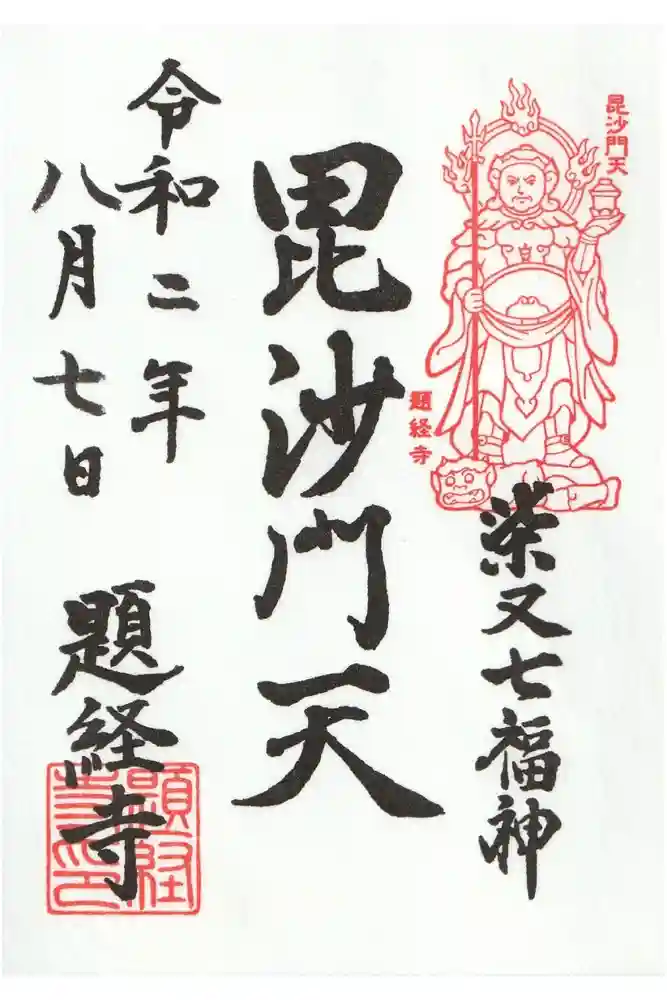 毘沙門天
題経寺
柴又七福神
毘沙門天
令和二年
八月七日
題経寺
題経寺印